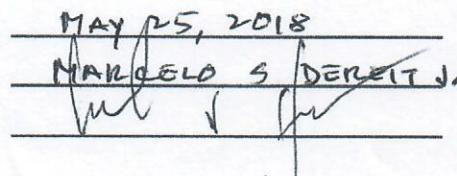 MAY 25, 2018
MARCELO S DEREIT J.